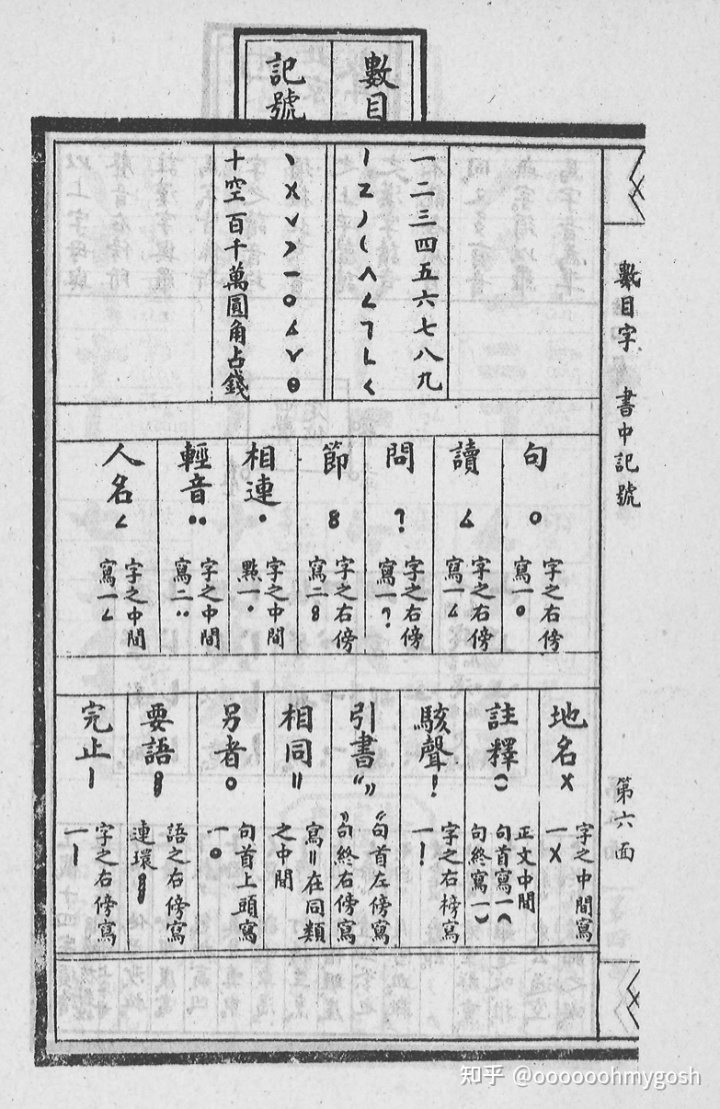 數目
記號
數目字 書中記號
第六面
一二三四五六七八九
十空百千萬圓角占錢
句 o 字之右傍寫一o
讀 字之右傍寫一
問 ? 字之右傍寫一?
節 8 字之右傍寫二8
相連 • 字之中間點一•
輕音 •• 字之中間寫二••
人名 ㄥ 字之中間寫一ㄥ
地名 x 字之中間寫一x
註釋 () 正文中間句首寫一( 句終寫一)
駭聲 ! 字之右榜寫一!
引書 “” “句首左傍寫 ”句終右傍寫
相同 || 寫||在同類之中間
另者 o 句首上頭寫一o
要語 語之右傍寫連環
完止 | 字之右傍寫一|
知乎 @oooooohmygosh